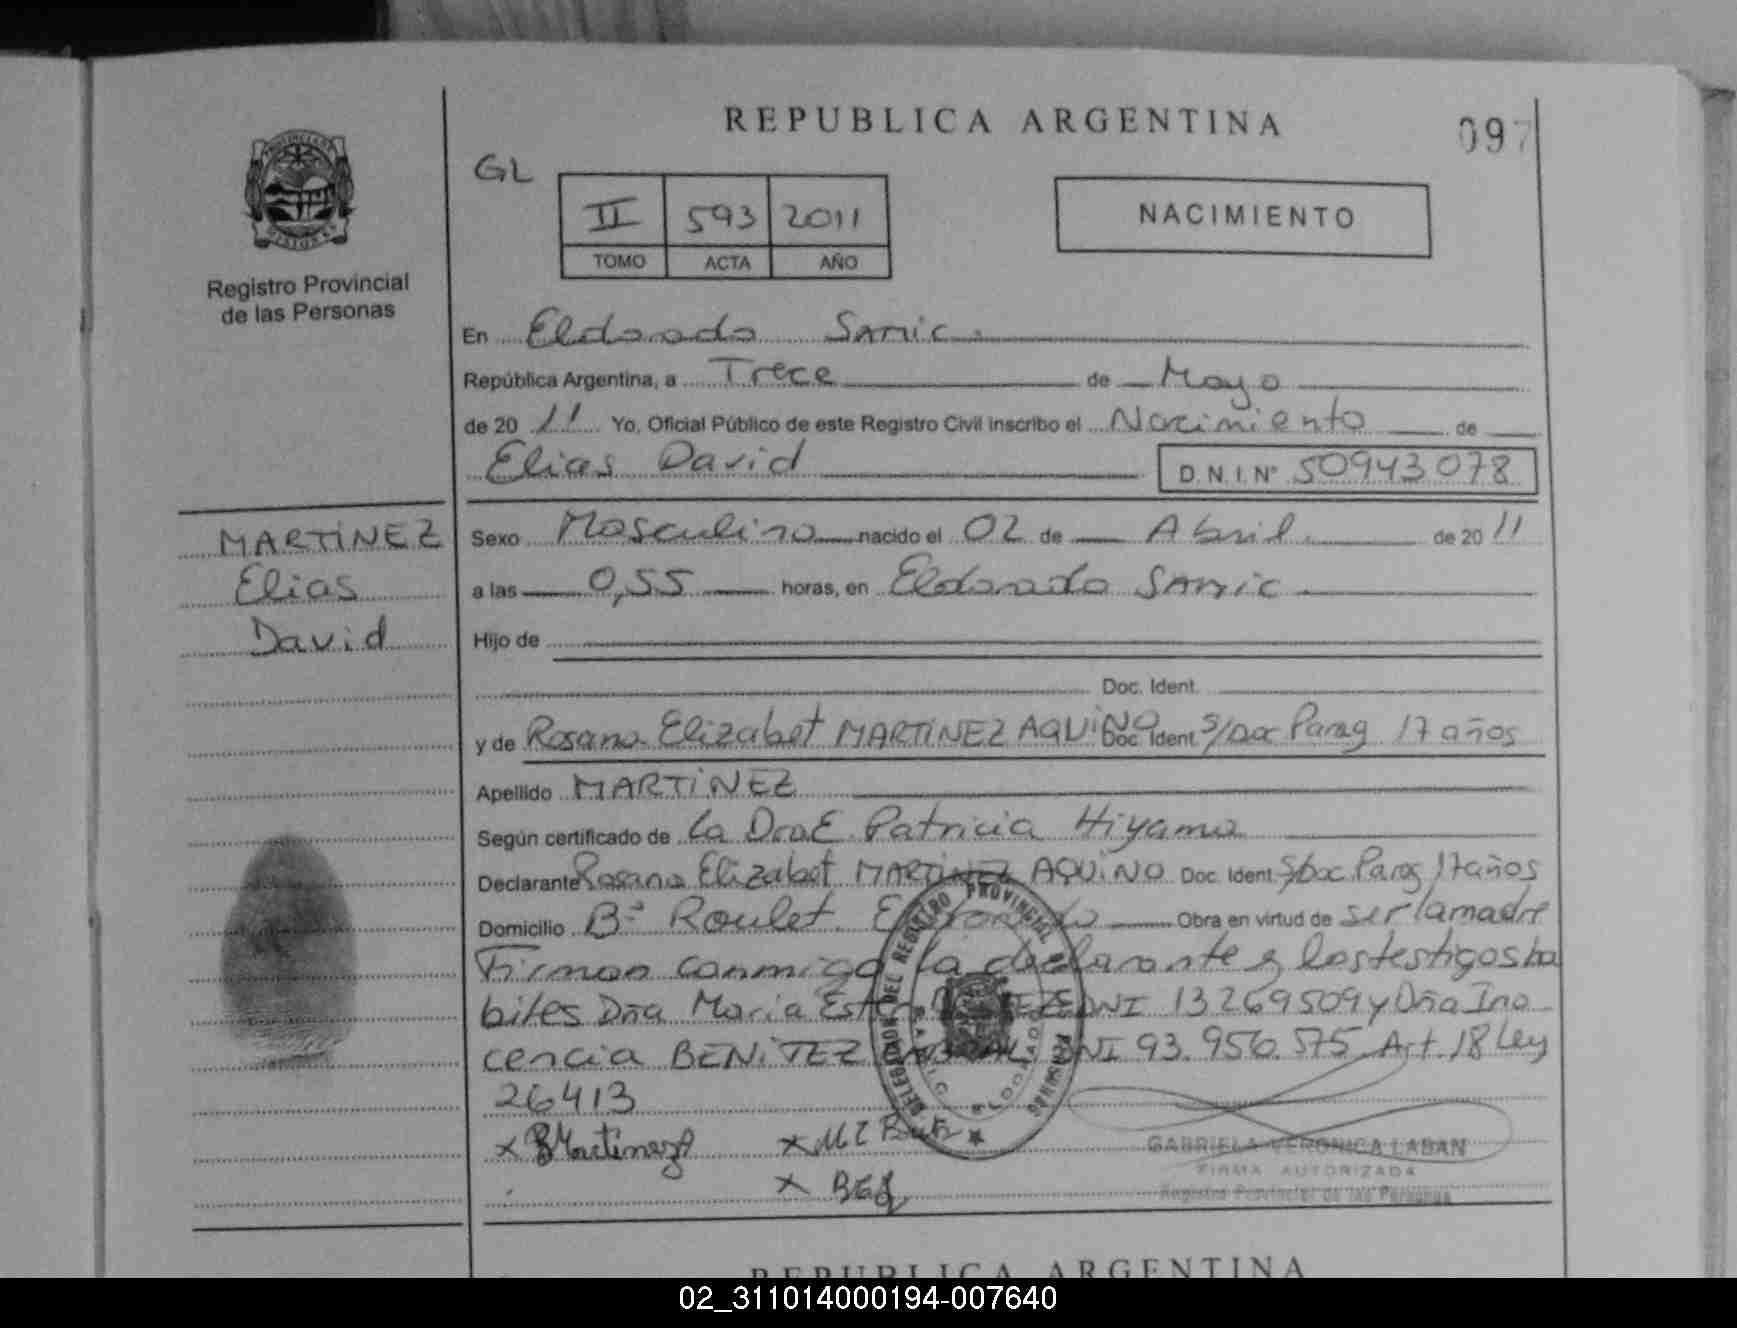 REPUBLICA ARGENTINA
097
GL
II 593 2011
TOMO ACTA AÑO
NACIMIENTO
Registro Provincial
de las Personas
En Eldorado Samic.
República Argentina, a Trece de Mayo
de 20 11 Yo, Oficial Público de este Registro Civil inscribo el Nacimiento de
Elias David D.N.I.Nº 50943078
MARTINEZ
Elias
David
Sexo Masculino nacido el 02 de Abril. de 20 11
a las 0,55 horas, en Eldorado Samic
Hijo de
Doc. Ident.
y de Rosana Elizabet MARTINEZ AQUINO Doc. Ident. s/Doc Parag 17 años
Apellido MARTINEZ
Según certificado de la Dra E. Patricia Hiyama
Declarante Rosana Elizabet MARTINEZ AQUINO Doc. Ident. S/Doc Parag 17 años
Domicilio Bº Roulet. Eldorado Obra en virtud de ser la madre
Firman conmigo la declarante y los testigos ha
biles Dña Maria Ester DNI 13269509 y Dña Ino
cencia BENITEZ DNI 93.956.575 Art. 18 Ley
26413
DELEGACION DEL REGISTRO PROVINCIAL PERSONAS
ELDORADO
GABRIELA VERONICA LABAN
FIRMA AUTORIZADA
Registro Provincial de las Personas
REPUBLICA ARGENTINA
02_311014000194-007640